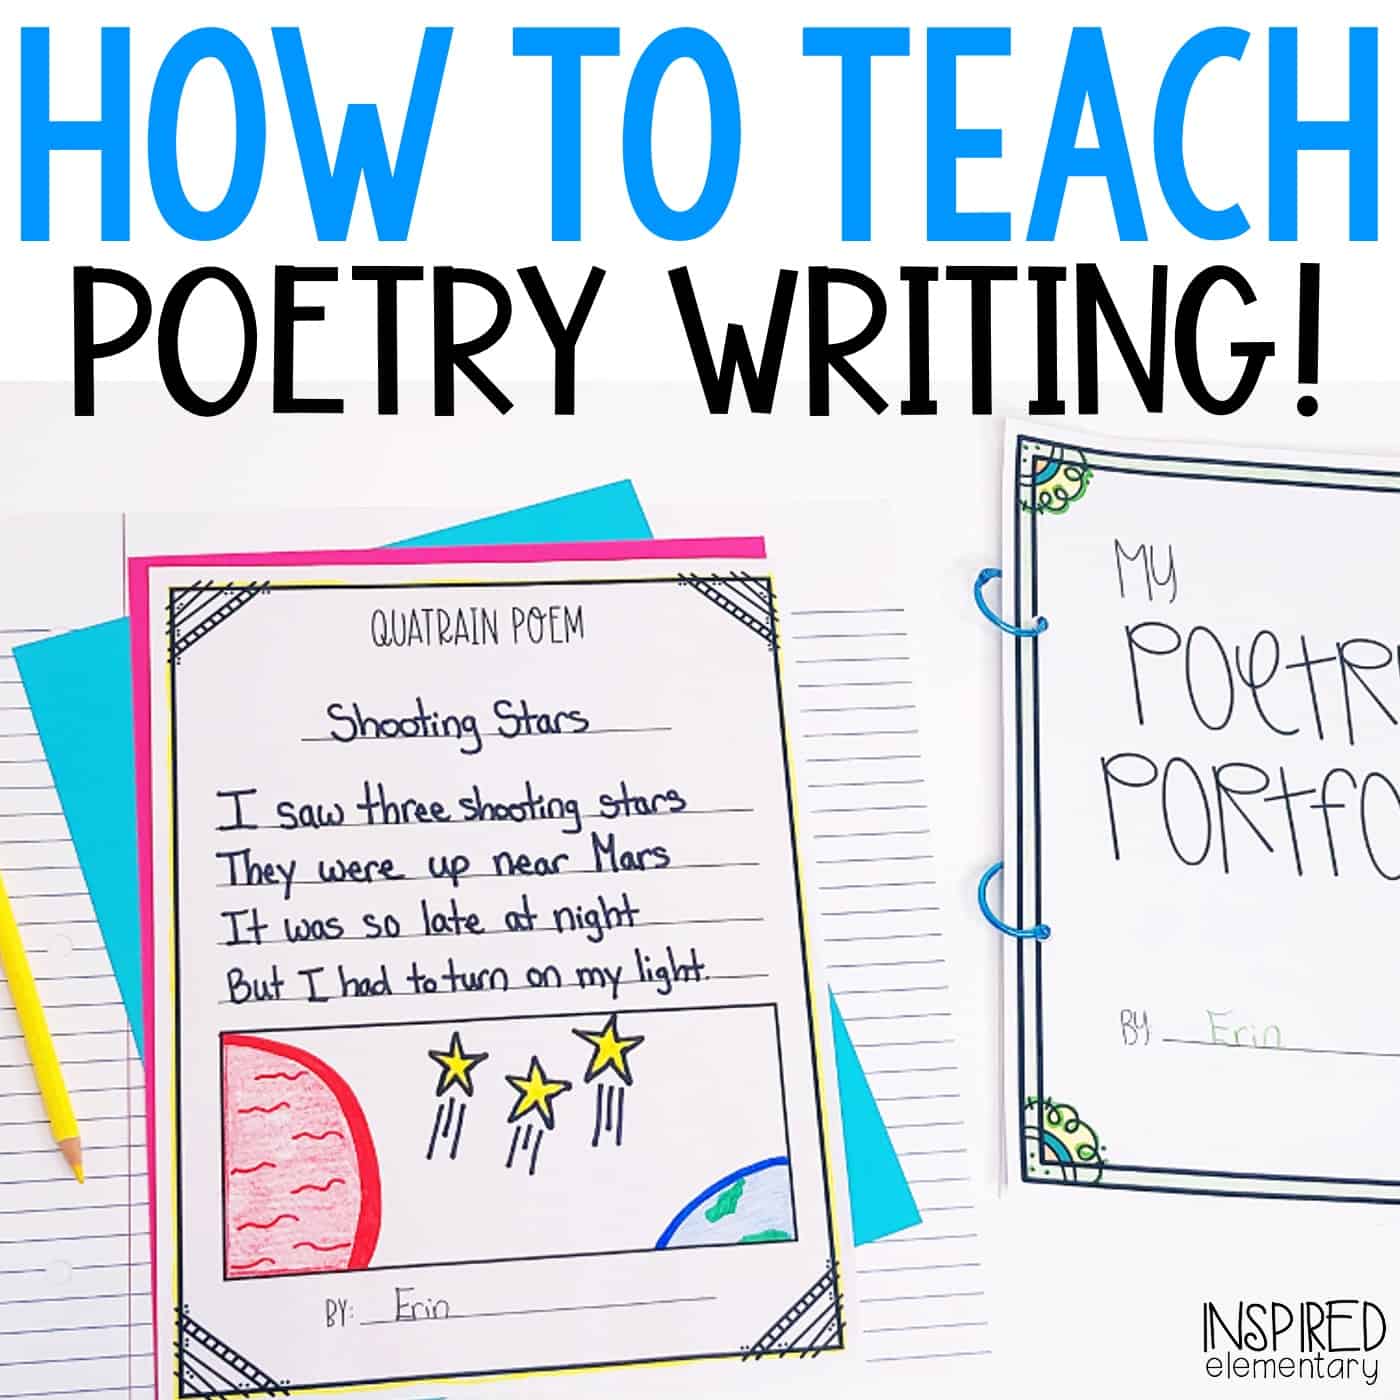 HOW TO TEACH
POETRY WRITING!
QUATRAIN POEM
Shooting Stars
I saw three shooting stars
They were up near Mars
It was so late at night
But I had to turn on my light.
BY: Erin
MY
POETR
PORTFO
BY: Erin
INSPIRED
elementary